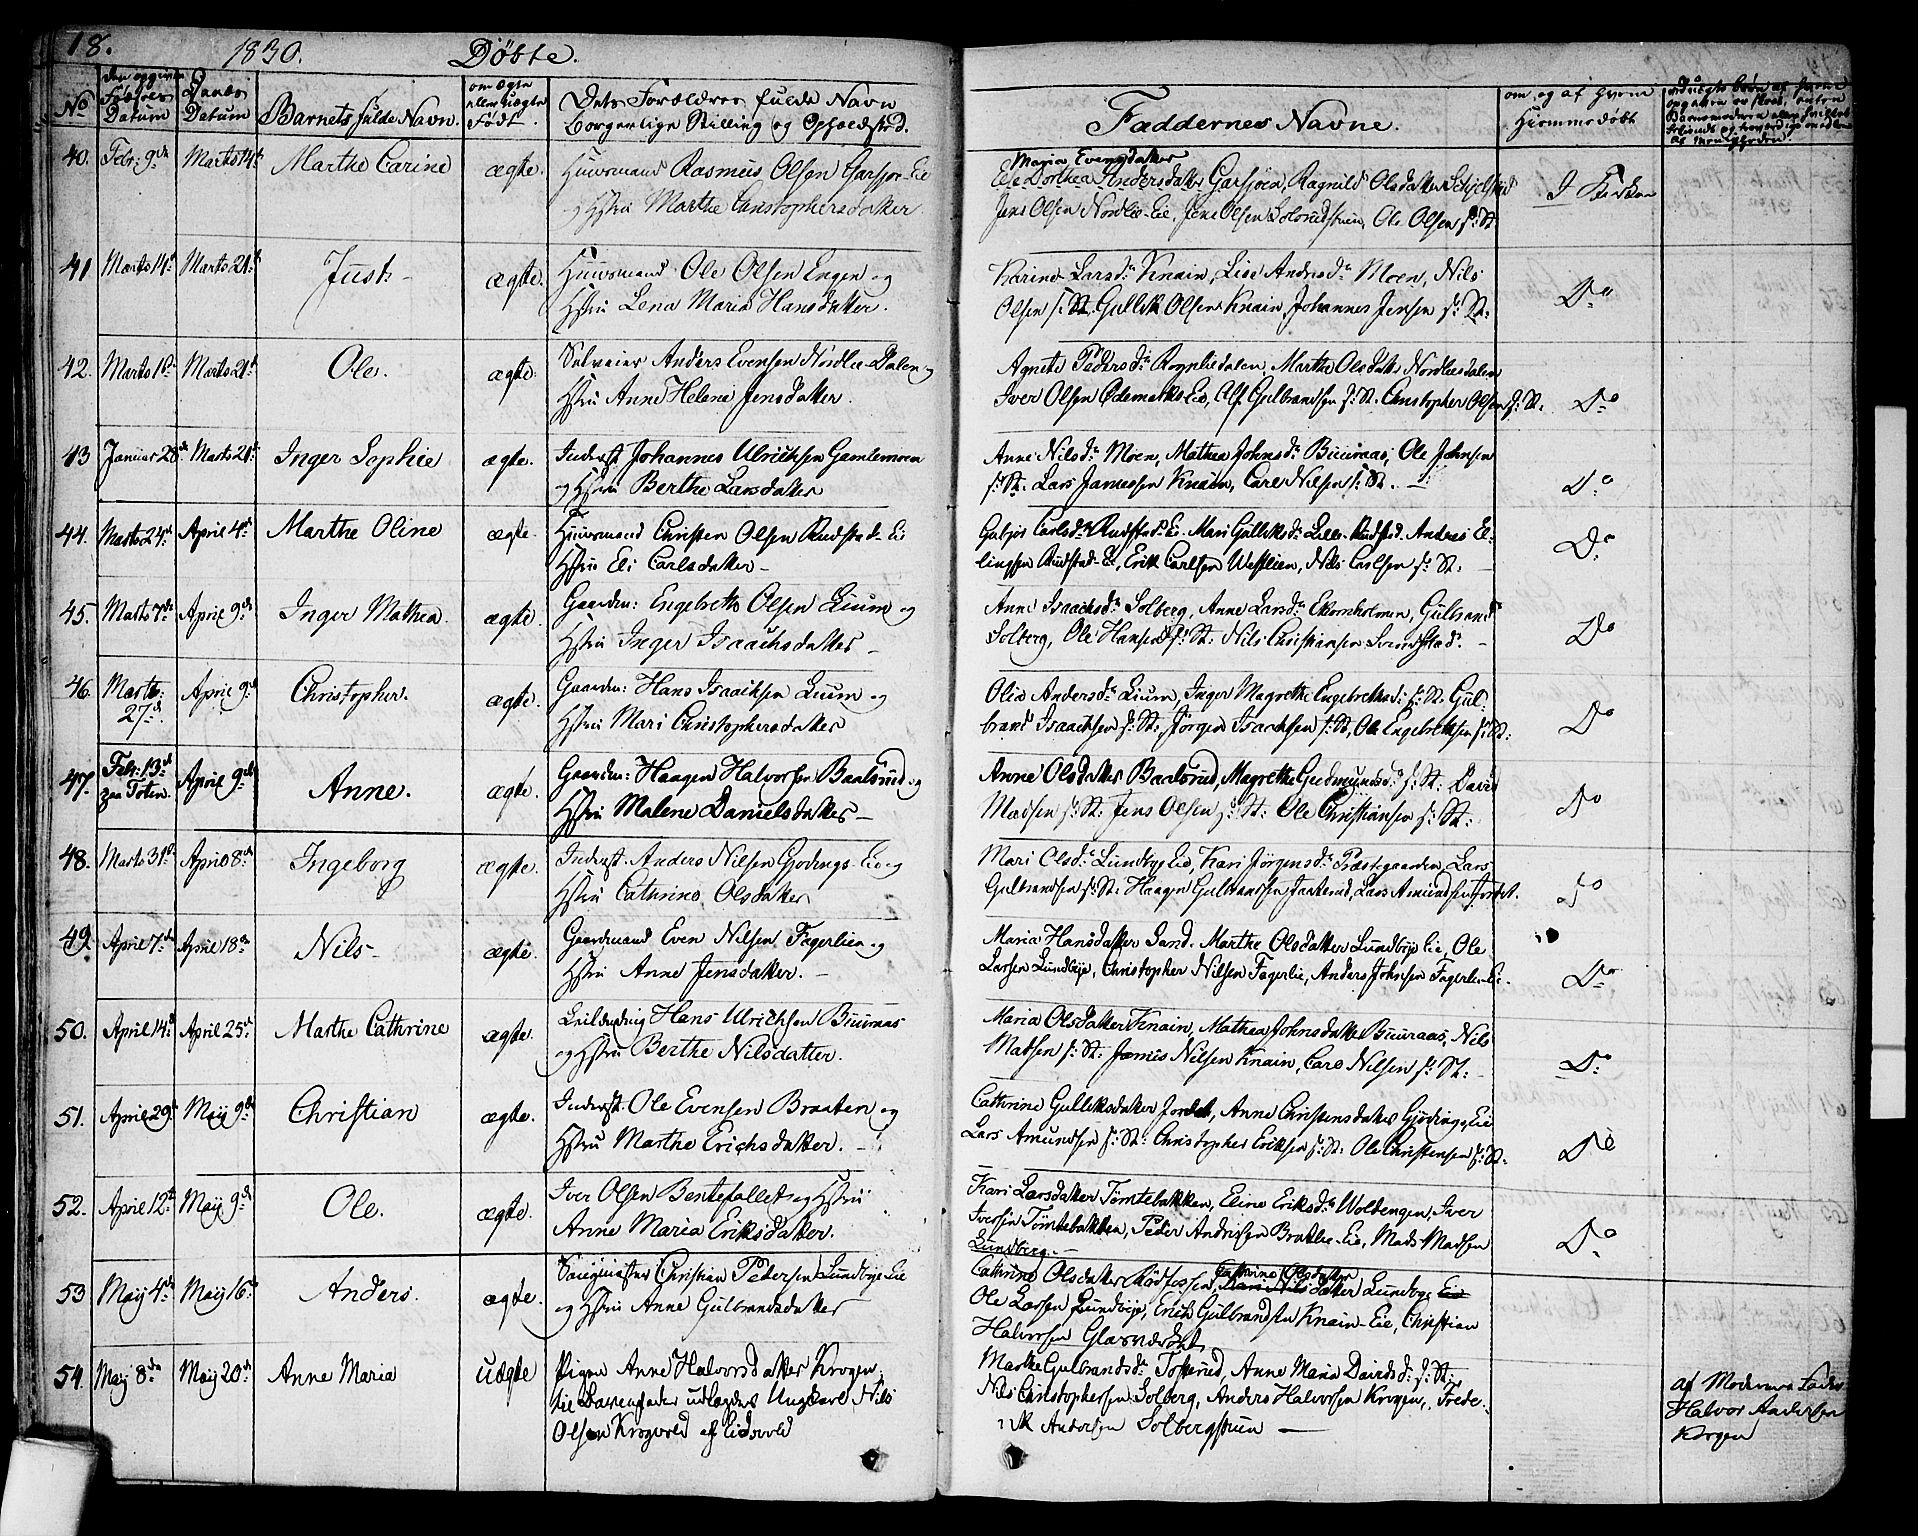 18.
1830. Döbte.
No
den opgivne Fødsels Datum
Daabs Datum
Barnets fulde Navn.
om ægte eller uægte Født.
Dets Forældres fulde Navn
borgerlige Stilling og Opholdsted.
Faddernes Navne.
om og af hvem Hiemmedøbt
40. Febr: 9de Marts 14de Marthe Carine ægte. Huusmand Rasmus Olsen Garsjøe-Eie
og Hstru Marthe Christophersdatter
Maria Evensdatter
Dorthea Andersdatter Garsjøen, Ragnild Olsdatter
Jens Olsen Nordlie-Eie, Jens Olsen, Ole Olsen s: St.
I Kirken
41 Marts 14d Marts 21d Just. ægte. Huusmand Ole Olsen Engen og
Hstru Lena Maria Hansdatter.
Karine Larsdr Knain, Lise Andersdr Moen, Nils
Olsen s: St. Gullik Olsen Knain, Johannes Jensen s: St:
Do
42. Marts 1d Marts 21d Ole. ægte. Selveier Anders Evensen Nordlie-Dalen og
Hstru Anne Helene Jensdatter.
Agnete Pedersdr Rognliedalen, Marthe Olsdatter Nordliedalen
Iver Olsen Ødemarks Eie, Alf Gulbrandsen s: St. Christopher Olsen s: St.
Do
43 Januar 28d Marts 21d Inger Sophie ægte. Inderst Johannes Ulrichsen Gamlemoen
og Hstru Berthe Larsdatter
Anne Nilsdr Moen, Mathea Johnsdr Buuraas, Ole Johnsen
s: St. Lars Jamessen Knain, Carl Nilsen s: St.
Do
44. Marts 24d April 4d Marthe Oline ægte. Huusmand Christen Olsen Rudstad-Ei
Hstru Eli Carlsdatter
Carlsdr Rudstad Ei. Mari Gulliksdr Lille-Rudstad. Anders El-
lingsen Rudstad-E, Erik Carlsen Westlien, Nils Carlsen s: St.
Do
45. Marts 7d April 9d Inger Mathea. ægte. Gaardm: Engebreth Olsen Lium og
Hstru Inger Isaachsdatter
Anne Isaachsdr Solberg, Anne Larsdr Ekornholmen, Gulbrand
Solberg, Ole Hansen s: St: Nils Christiansen
Do
46. Marts 27d. April 9d Christopher. ægte. Gaardm: Hans Isaachsen Lium og
Hstru Mari Christophersdatter
Olia Andersdr Lium, Inger Magrethe Engebrethsdr s: St. Gul-
brand Isaachsen s: St: Jørgen Isachsen s: St, Ole Engebrethsen s: St:
Do
47. Febr: 13d paa Toten. April 9d Anne. ægte. Gaardm: Haagen Halvorsen Baalsrud og
Hstru Malene Danielsdatter
Anne Olsdatter Baalsrud, Magrethe Gudmundsdr s: St: David
Madsen s: St: Jens Olsen s: St: Ole Christiansen s: St:
Do
48. Marts 31d April 8d Ingeborg ægte. Inderst. Anders Nilsen Gjødings-Eie og
Hstru Cathrine Olsdatter
Mari Olsdr Lundbye Eie, Kari Jørgensdr Præstegaarden, Lars
Gulbrandsen s: St: Haagen Gulbrandsen, Lars Amundsen Jordet.
Do
49. April 7d April 18d Nils ægte. Gaardmand Even Nilsen Fagerlien og
Hstru Anne Jensdatter.
Maria Hansdatter Sand. Marthe Olsdatter Lundbye Eie, Ole
Larsen Lundbye, Christopher Nilsen Fagerlie, Anders Johnsen Fagerlie-Eie.
Do
50. April 14d April 25d Marthe Cathrine ægte. Hans Ulrichsen Buuraas
og Hstru Berthe Nilsdatter.
Maria Olsdatter Knain, Mathea Johnsdatter Buuraas, Nils
Madsen s: St: Jamis Nilsen Knain, Carl Nilsen s: St:
Do
51. April 29d Maij 9d Christian ægte. Inderst. Ole Evensen Braaten og
Hstru Marthe Erichsdatter.
Cathrine Gulliksdatter Jordet, Anne Christensdatter Gjøding Eie
Lars Amundsen s: St: Christopher Eriksen s: St: Ole Christensen s: St:
Do
52. April 12d Maij 9d Ole. ægte. Iver Olsen Bentefallet og Hstru
Anne Maria Eriksdatter.
Kari Larsdatter Tømtebakken, Eline Eriksdr Wolbengen, Iver
Iversen Tømtebakken, Peder Andersen Bratlie-Eie, Mads Madsen
Lundberg.
Do
53 Maij 4d Maij 16d Anders. ægte. Saugmester Christian Petersen Lundbye-Eie
og Hstru Anne Gulbrandsdatter
Cathrine Olsdatter Rødfossen, Cathrine Olsdatter Lundbye Eie
Ole Larsen Lundbye, Erich Gulbrandsen Knain-Eie, Christian
Halvorsen Glasværket
54. Maij 8de Maij 20d Anne Maria uægte Pigen Anne Halvorsdatter Krogen,
til Barnefader udlægdes Ungkarl Nils
Olsen Krogvold af Eidsvold
Marthe Gulbrandsdr Tosterud, Anne Maria Davidsdr s: St:
Nils Christophersen Solberg, Anders Halvorsen Krogen, Frede-
rik Andersen Solbergstuen
af Moderens Fader
Halvor Andersen
Krogen